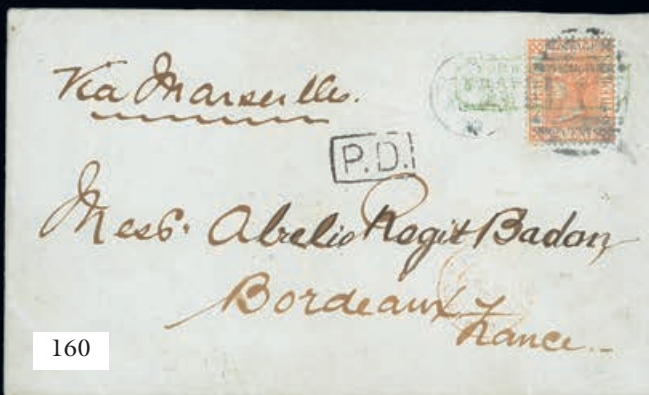 Via Marseilles.
P.D.
Mess. Abelio Rogit Badon
Bordeaux
France
160